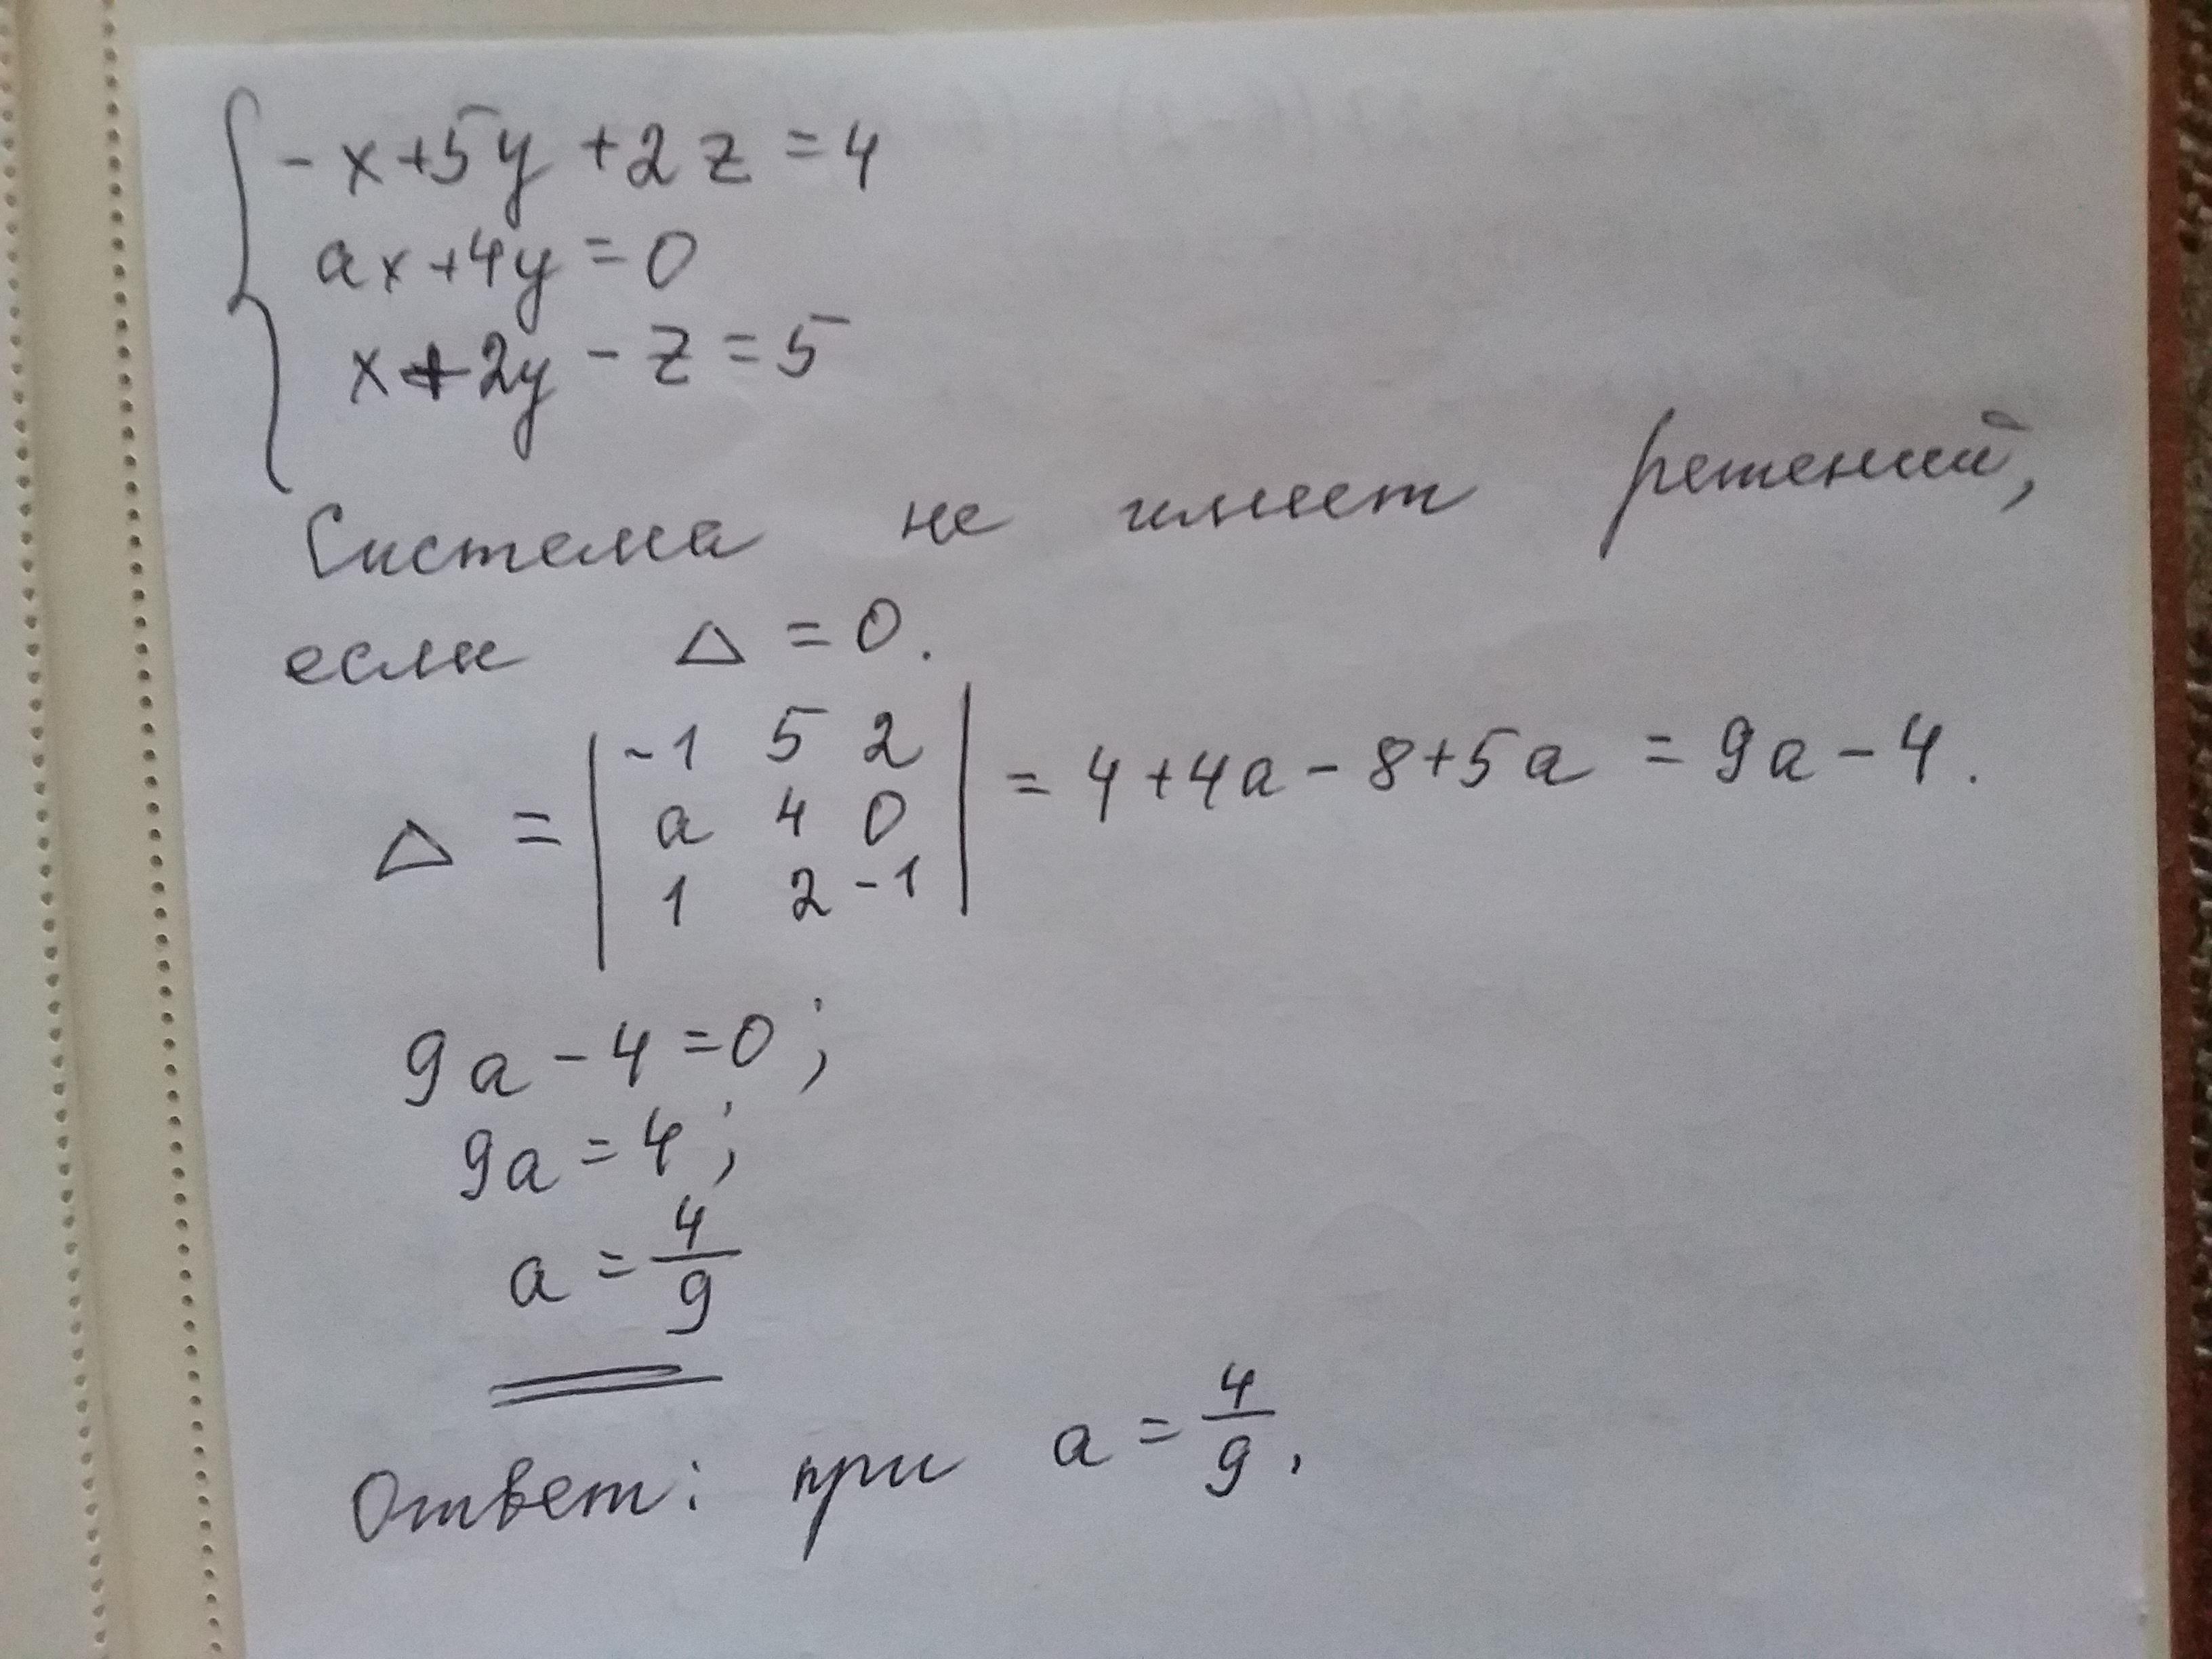 -x+5y+2z=4
ax+4y=0
x+2y-z=5
Система не имеет решений,
если Δ=0.
Δ = | -1 5 2 | = 4+4a-8+5a = 9a-4.
a 4 0
1 2 -1
9a-4=0;
9a=4;
a=4/9
Ответ: при a=4/9.